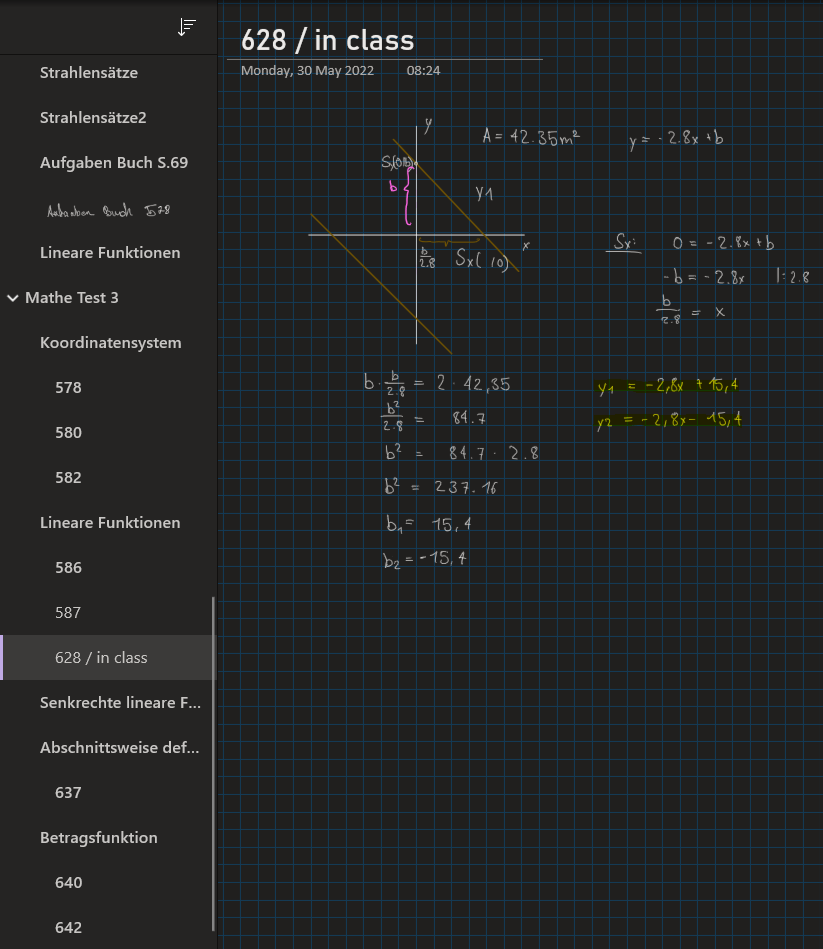 Strahlensätze
Strahlensätze2
Aufgaben Buch S.69
Aufgaben Buch S78
Lineare Funktionen
Mathe Test 3
Koordinatensystem
578
580
582
Lineare Funktionen
586
587
628 / in class
Senkrechte lineare F...
Abschnittsweise def...
637
Betragsfunktion
640
642
628 / in class
Monday, 30 May 2022 08:24
y
A = 42.35m²
y = -2.8x + b
S(0|b)
b
y1
x
b/2.8
Sx( |0)
Sx: 0 = -2.8x + b
-b = -2.8x |:2.8
b/2.8 = x
b · b/2.8 = 2 · 42,35
b²/2.8 = 84.7
b² = 84.7 · 2.8
b² = 237.16
b₁ = 15,4
b₂ = -15,4
y₁ = -2,8x + 15,4
y₂ = -2,8x - 15,4